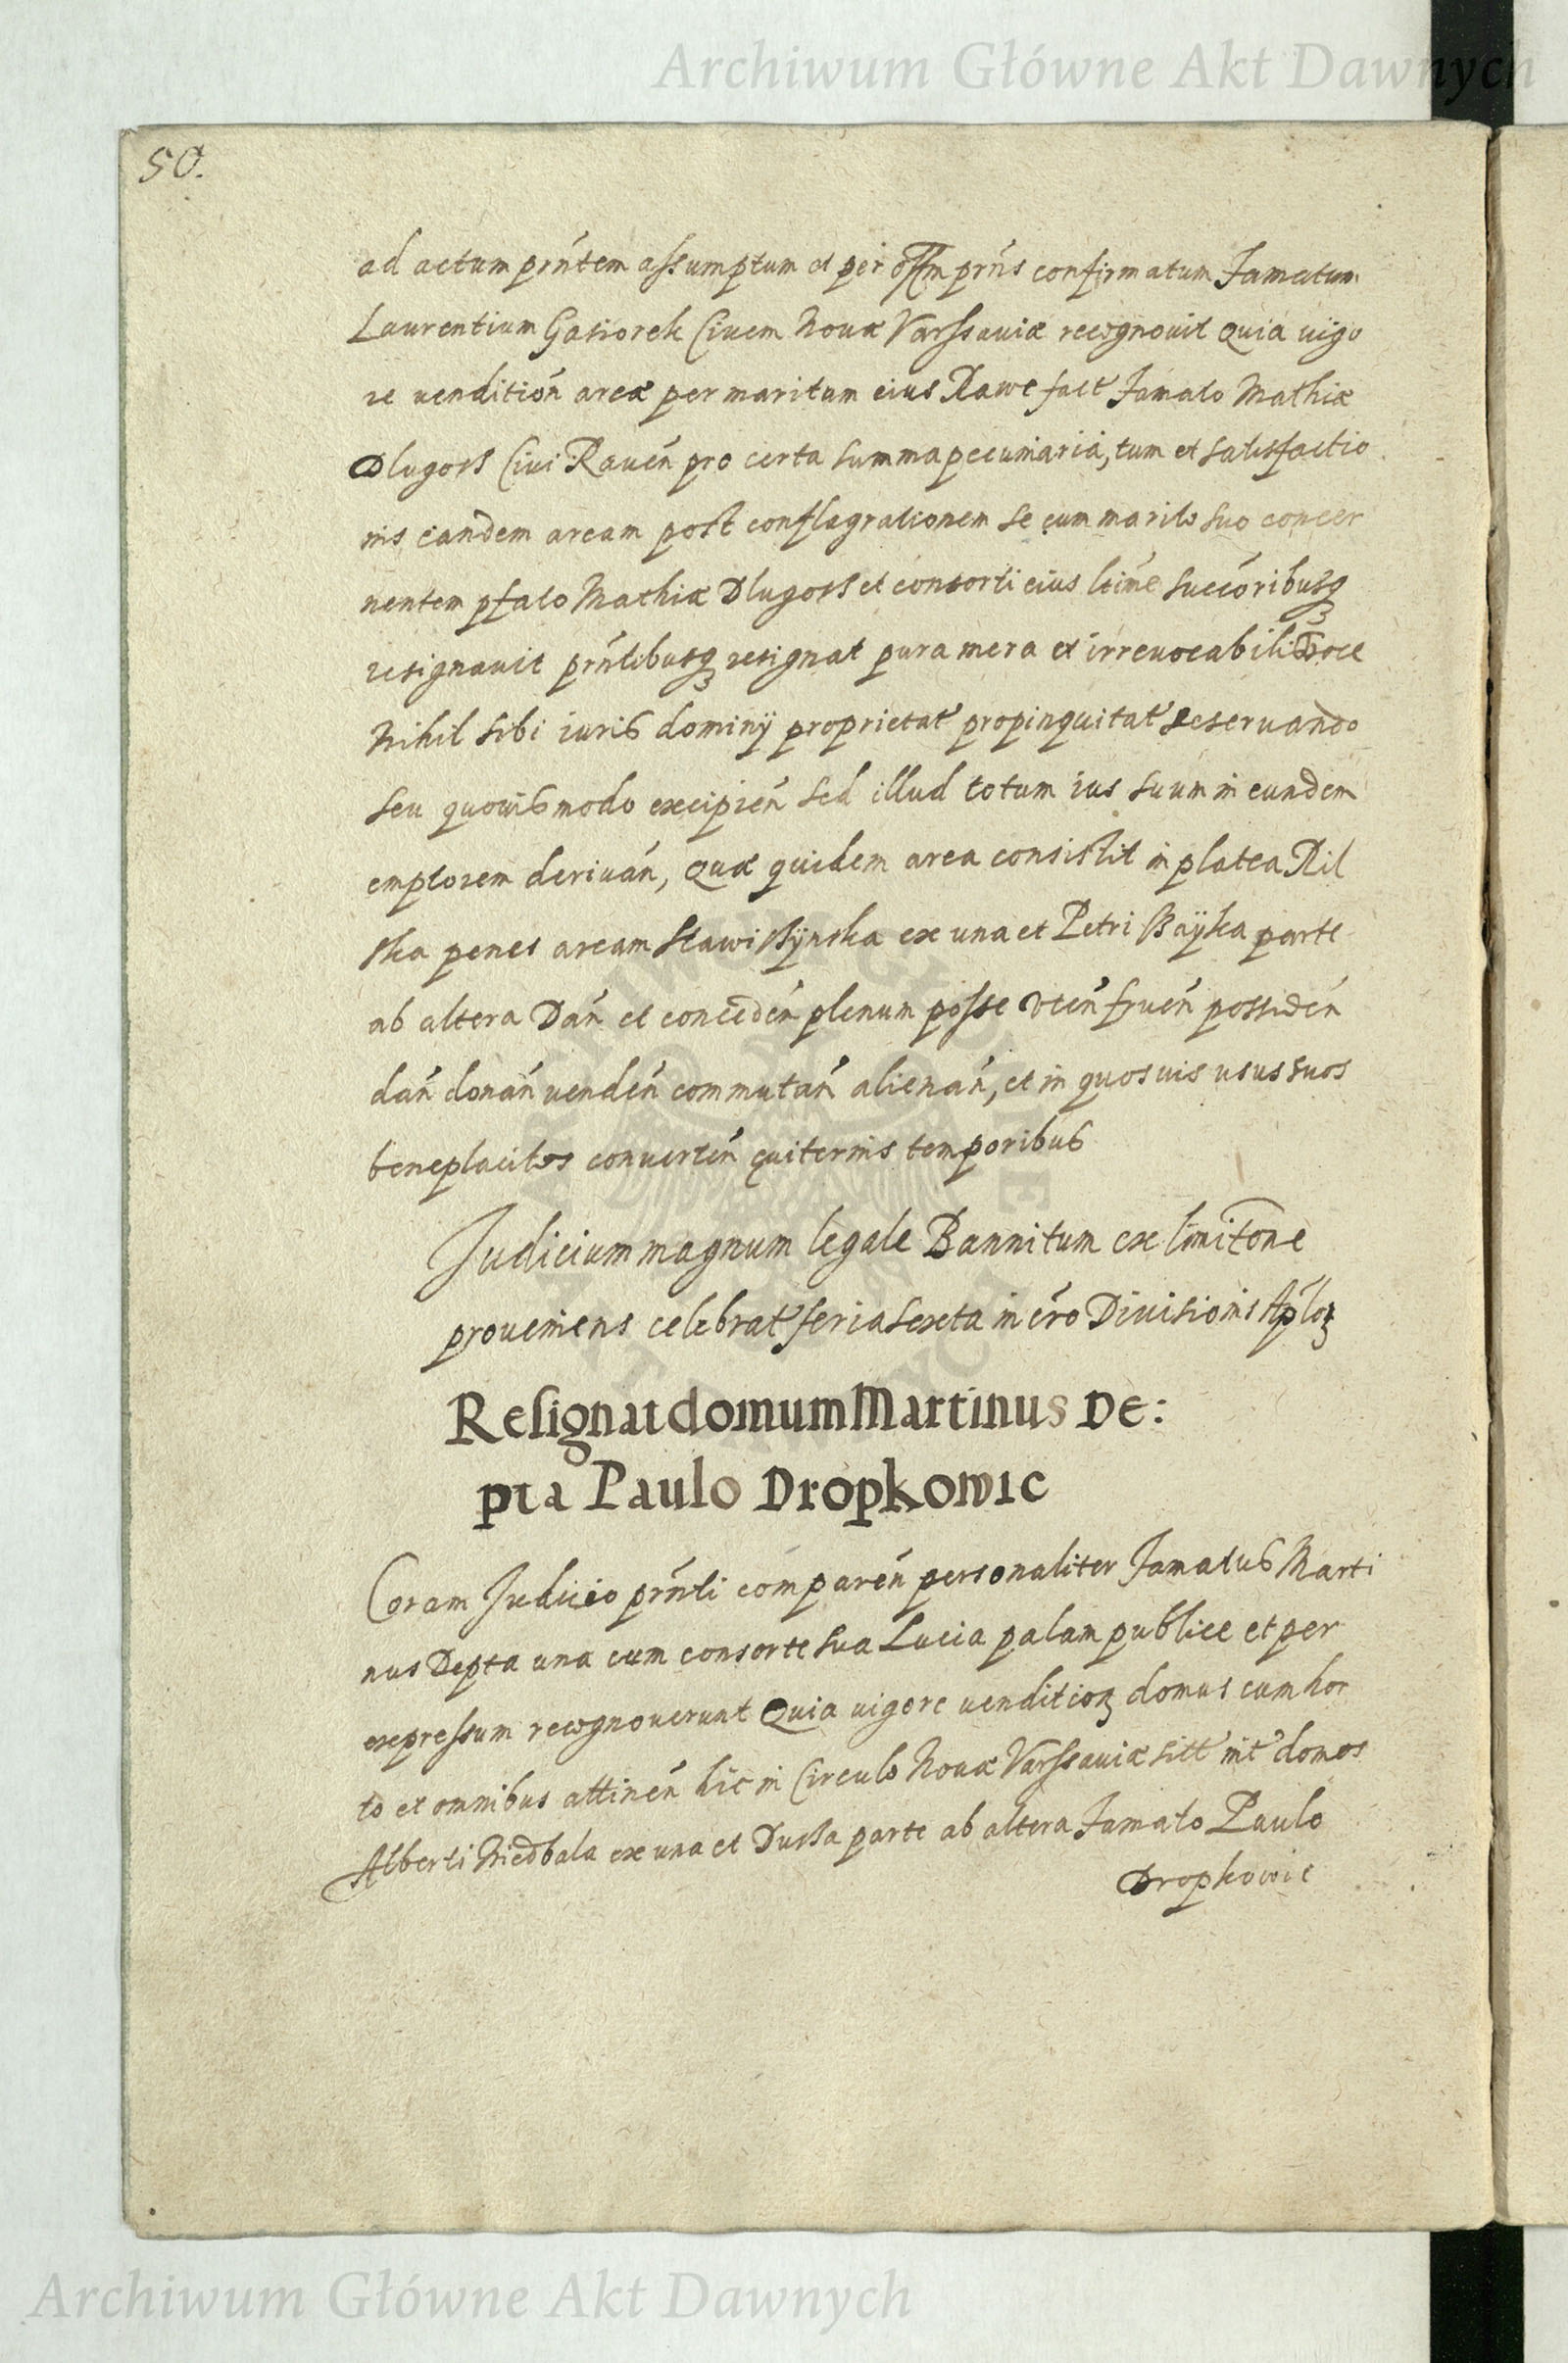 Archiwum Główne Akt Dawnych
50.
ad actum prńtem assumptum et per offm prńs confirmatum Famatum
Laurentium Gasiorek Civem Nouæ Varssauiæ recognouit Quia uigo
re uenditioń areæ per maritum eius Rawe fact Famato Mathiæ
Dlugoss Ciui Raueń pro certa summa pecuniaria, tum et satisfactio
nis eandem aream post conflagrationem se cum marito suo concer
nentem pfato Mathiæ Dlugoss et consorti eius ltime succoribusq
resignauit prńtibusq resignat pura mera et irreuocabili voce
Nihil sibi iuris dominij proprietat propinquitat reseruando
seu quouismodo excipień sed illud totum ius suum in eundem
emptorem deriuań, Quæ quidem area consistit in platea Ril
ska penes aream Stawissÿnska ex una et Petri Baÿka parte
ab altera Dań et conceděń plenum posse vteń frueń possideń
dań donań uendeń commutań alienań, et in quosuis usus suos
beneplacitos conuerteń euiternis temporibus
Judicium magnum legale Bannitum ex limitone
proueniens celebrat feria sexta in cro Diuisionis Aplor
Resignat domum Martinus De:
pta Paulo Dropkowic
Coram Judicio prńti compareń personaliter Famatus Marti
nus Depta una cum consorte sua Lucia palam publice et per
expressum recognouerunt Quia uigore uendition domus cum hor
to et omnibus attineń hic in Circulo Nouæ Varssauiæ sitt int domos
Alberti Niedbala ex una et Dussa parte ab altera Famato Paulo
Dropkowic
Archiwum Główne Akt Dawnych